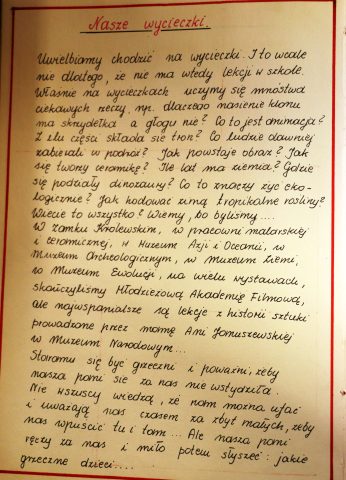 Nasze wycieczki.
Uwielbiamy chodzić na wycieczki. I to wcale
nie dlatego, że nie ma wtedy lekcji w szkole.
Właśnie na wycieczkach uczymy się mnóstwa
ciekawych rzeczy, np. dlaczego nasienie klonu
ma skrzydełka a głogu nie? Co to jest animacja?
Z ilu części składa się tron? Co ludzie dawniej
zabierali w podróż? Jak powstaje obraz? Jak
się tworzy ceramikę? Ile lat ma ziemia? Gdzie
się podziały dinozaury? Co to znaczy żyć eko-
logicznie? Jak hodować zimą tropikalne rośliny?
Wiecie to wszystko? Wiemy, bo byliśmy....
W Zamku Królewskim, w pracowni malarskiej
i ceramicznej, w Muzeum Azji i Oceanii, w
Muzeum Archeologicznym, w Muzeum Ziemi,
w Muzeum Ewolucji, na wielu wystawach,
skończyliśmy Młodzieżową Akademię Filmową,
ale najwspanialsze są lekcje z historii sztuki
prowadzone przez mamę Ani Januszewskiej
w Muzeum Narodowym...
Staramy się być grzeczni i poważni, żeby
nasza pani się za nas nie wstydziła.
Nie wszyscy wiedzą, że nam można ufać
i uważają nas czasem za zbyt małych, żeby
nas wpuścić tu i tam... Ale nasza pani
ręczy za nas i miło potem słyszeć: jakie
grzeczne dzieci....